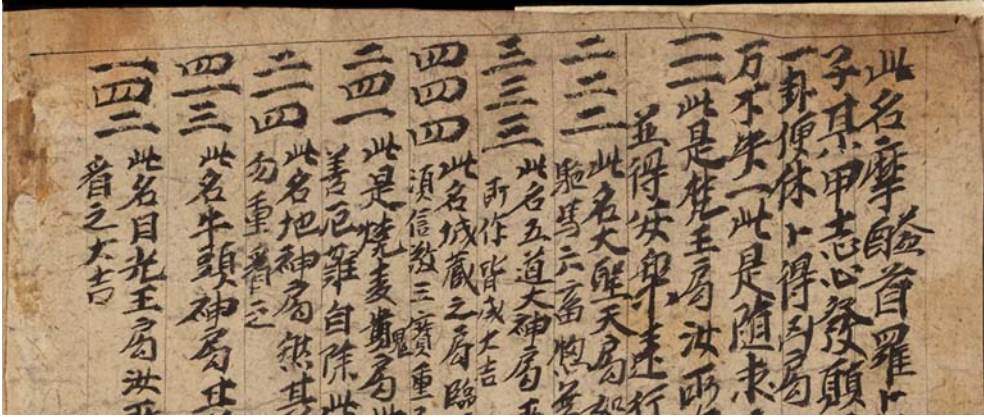 此名摩醯首羅卜
子某甲志心發願
一卦便休卜得局
万不失一此是隨求
一一一此是梵王局汝所
並得安速行
二二二此名大聖天局
驅馬六畜惣
三三三此名五道大神局
所作皆成大吉
四四四此名城藏之局臨
須信敬三寶重
二四一此是局
善厄難自除此
二一四此名地神局其
勿重看之
四一三此名牛頭神局
一四二此名目光王局汝
看之大吉